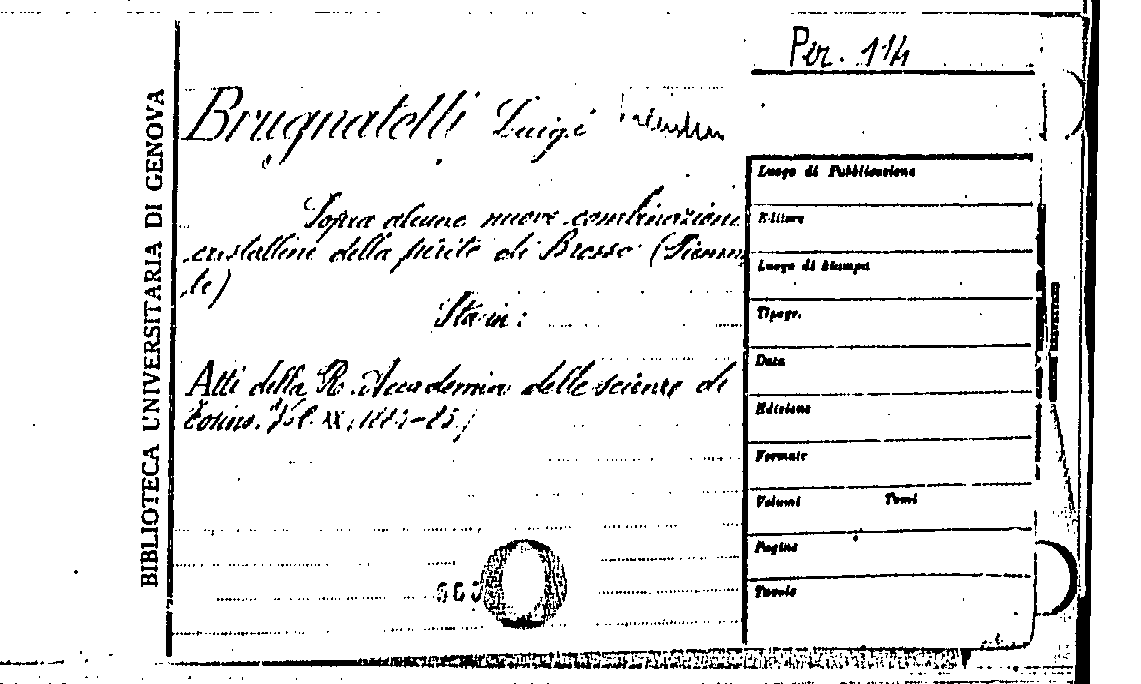 Per. 114
BIBLIOTECA UNIVERSITARIA DI GENOVA
Brugnatelli Luigi
Sopra alcune nuove combinazioni
cristalline della pirite di Brosso (Piemon
te)
Sta in:
Atti della R. Accademia delle scienze di
Torino. Vol. XX,
Luogo di Pubblicazione
Editore
Luogo di Stampa
Tipogr.
Data
Edizione
Formato
Volumi Tomi
Pagine
Tavole